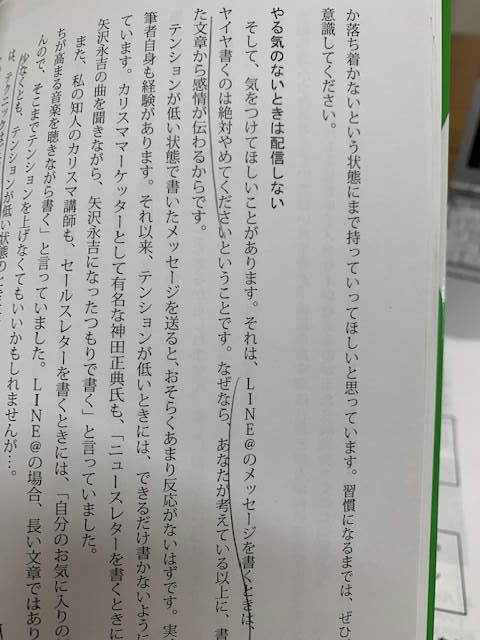 か落ち着かないという状態にまで持っていってほしいと思っています。習慣になるまでは、ぜひ
意識してください。
やる気のないときは配信しない
そして、気をつけてほしいことがあります。それは、LINE@のメッセージを書くときは、
ヤイヤ書くのは絶対やめてくださいということです。なぜなら、あなたが考えている以上に、書
た文章から感情が伝わるからです。
テンションが低い状態で書いたメッセージを送ると、おそらくあまり反応がないはずです。実
筆者自身も経験があります。それ以来、テンションが低いときには、できるだけ書かないように
ています。カリスママーケッターとして有名な神田正典氏も、「ニュースレターを書くときに
矢沢永吉の曲を聞きながら、矢沢永吉になったつもりで書く」と言っていました。
また、私の知人のカリスマ講師も、セールスレターを書くときには、「自分のお気に入りの
ちが高まる音楽を聴きながら書く」と言っていました。LINE@の場合、長い文章ではあり
んので、そこまでテンションを上げなくてもいいかもしれませんが…。
少なくとも、テンションが低い状態の
は、テクニック